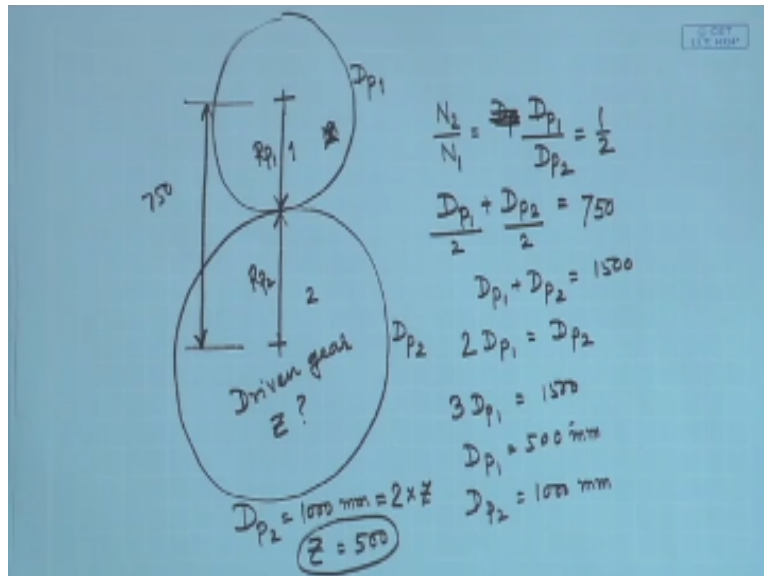 © CET
I.I.T. KGP
D_{P1}
R_{P1} 1
750
R_{P2}
2
D_{P2}
Driven gear
Z ?
D_{P2} = 1000 mm = 2 × Z
Z = 500
N_2/N_1 = D_{P1}/D_{P2} = 1/2
D_{P1}/2 + D_{P2}/2 = 750
D_{P1} + D_{P2} = 1500
2 D_{P1} = D_{P2}
3 D_{P1} = 1500
D_{P1} = 500 mm
D_{P2} = 1000 mm